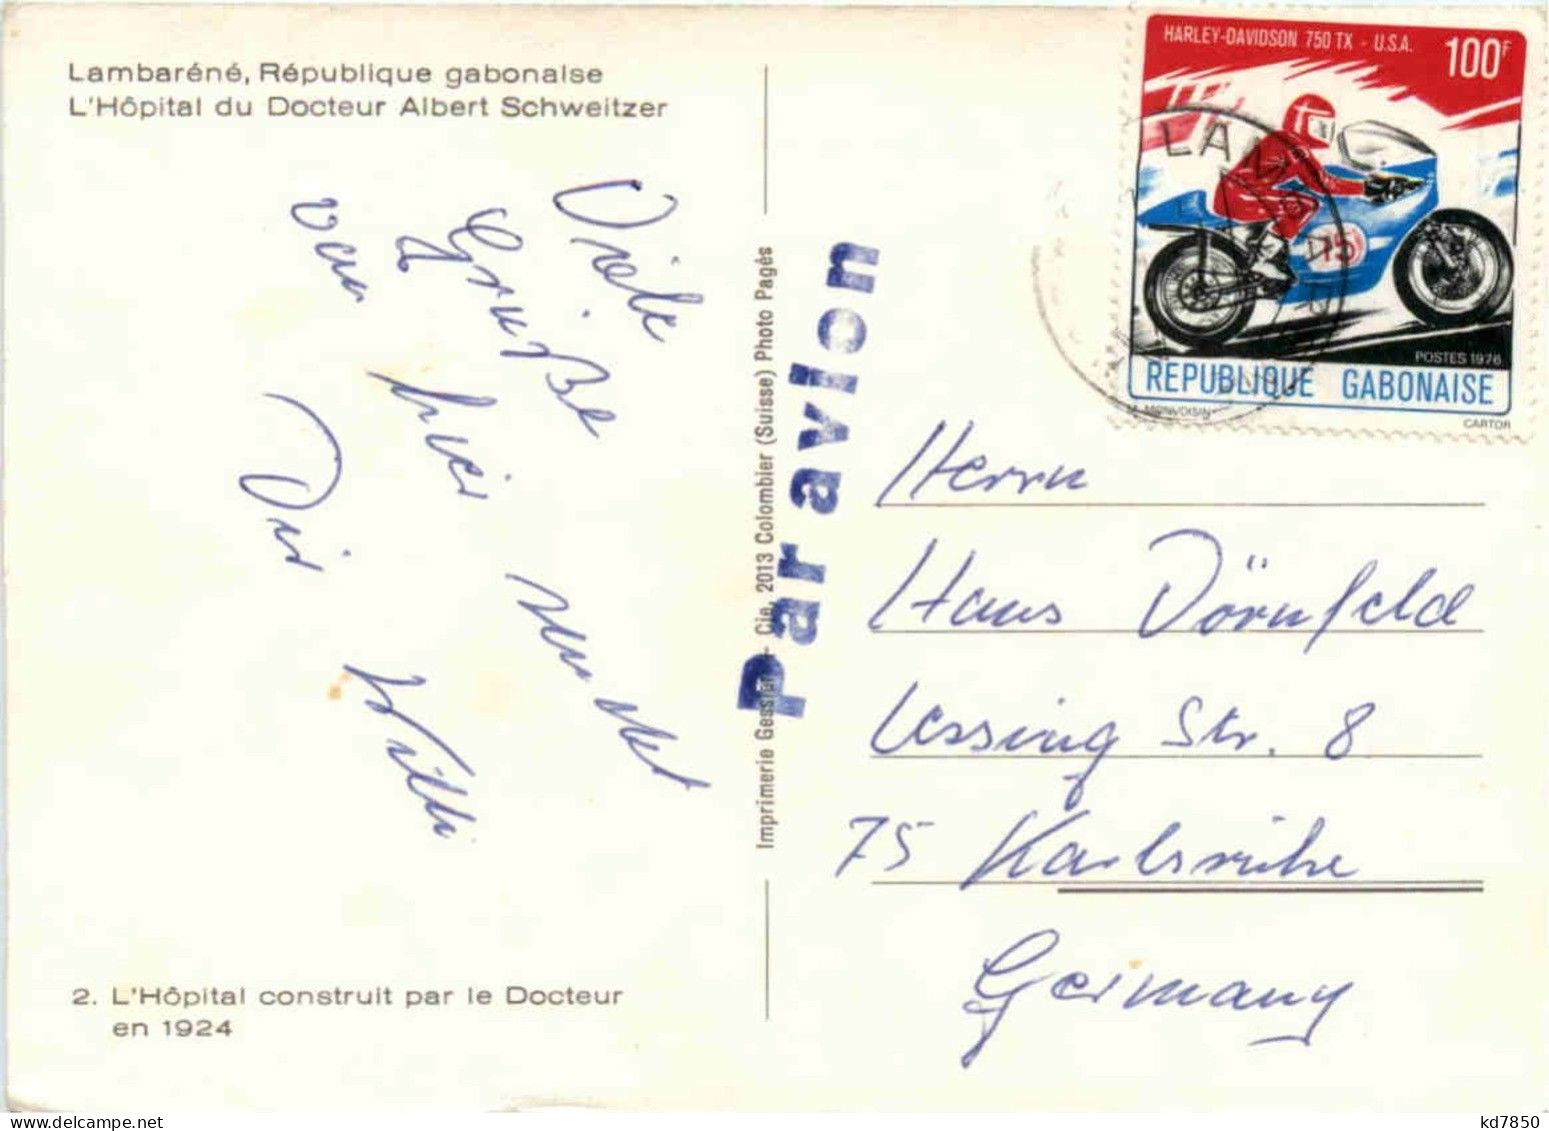 Lambaréné, République gabonaise
L'Hôpital du Docteur Albert Schweitzer
Viele
Grüße
von hier
Dir
Willi
2. L'Hôpital construit par le Docteur
en 1924
Imprimerie Gessler + Cie, 2013 Colombier (Suisse) Photo Pagès
Par avion
HARLEY-DAVIDSON 750 TX - U.S.A. 100F
15
POSTES 1976
REPUBLIQUE GABONAISE
M. MONVOISIN
CARTOR
Herrn
Hans Dörnfeld
Lessing Str. 8
75 Karlsruhe
Germany
kd7850